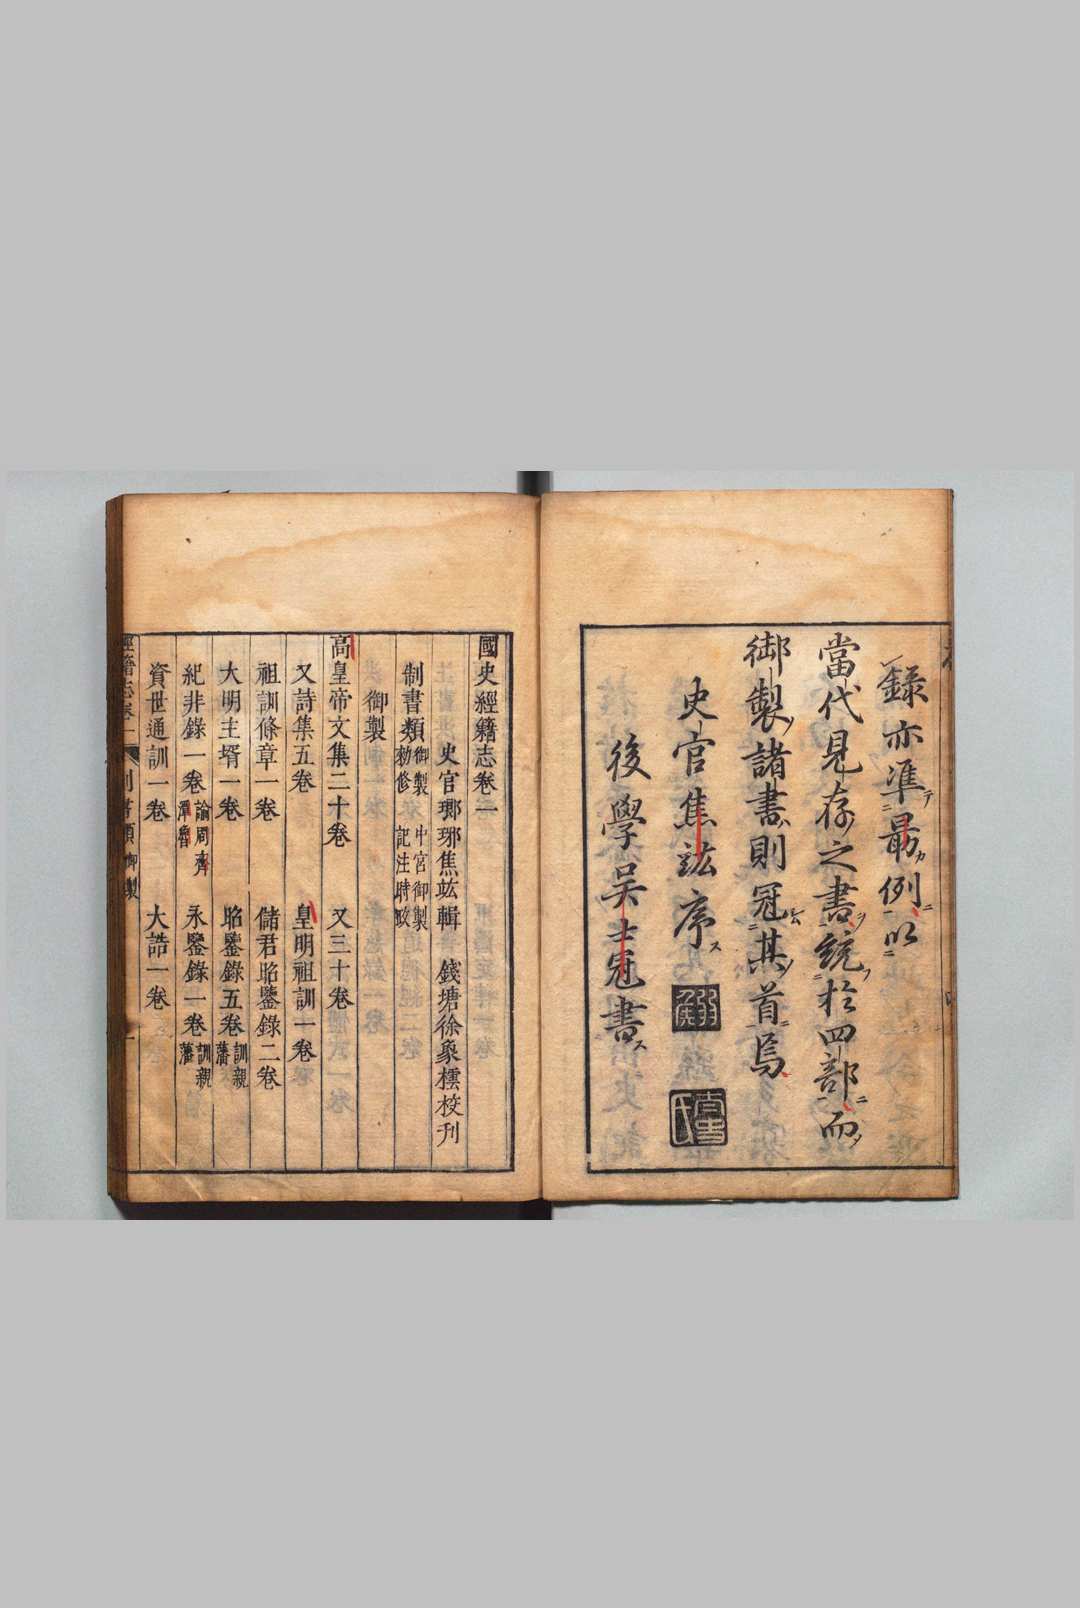 錄亦準勗例以
當代見存之書統於四部而
御製諸書則冠其首焉
史官焦竑序
後學吳士冠書
國史經籍志卷一
史官瑯琊焦竑輯 錢塘徐象橒校刊
制書類 御製 中宮御製 勑修 記注時政
御製
高皇帝文集二十卷 又三十卷
又詩集五卷 皇明祖訓一卷
祖訓條章一卷 儲君昭鑒錄二卷
大明主壻一卷 昭鑒錄五卷 訓親藩
紀非錄一卷 諭周齊潭魯 永鑒錄一卷 訓親藩
資世通訓一卷 大誥一卷
經籍志卷一 制書類 御製 一